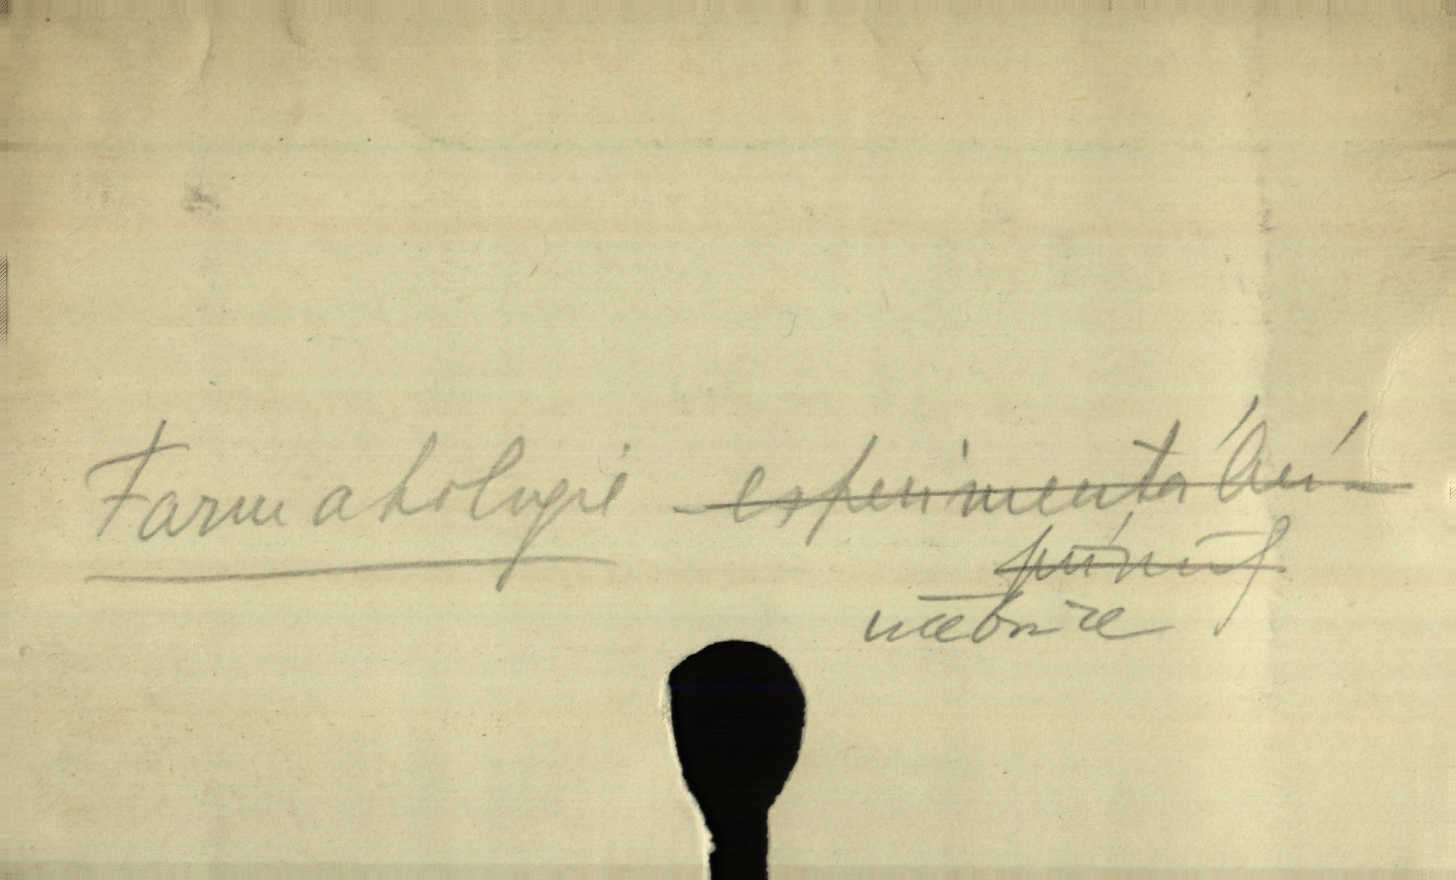 Farmakologie - experimentální
učebnice